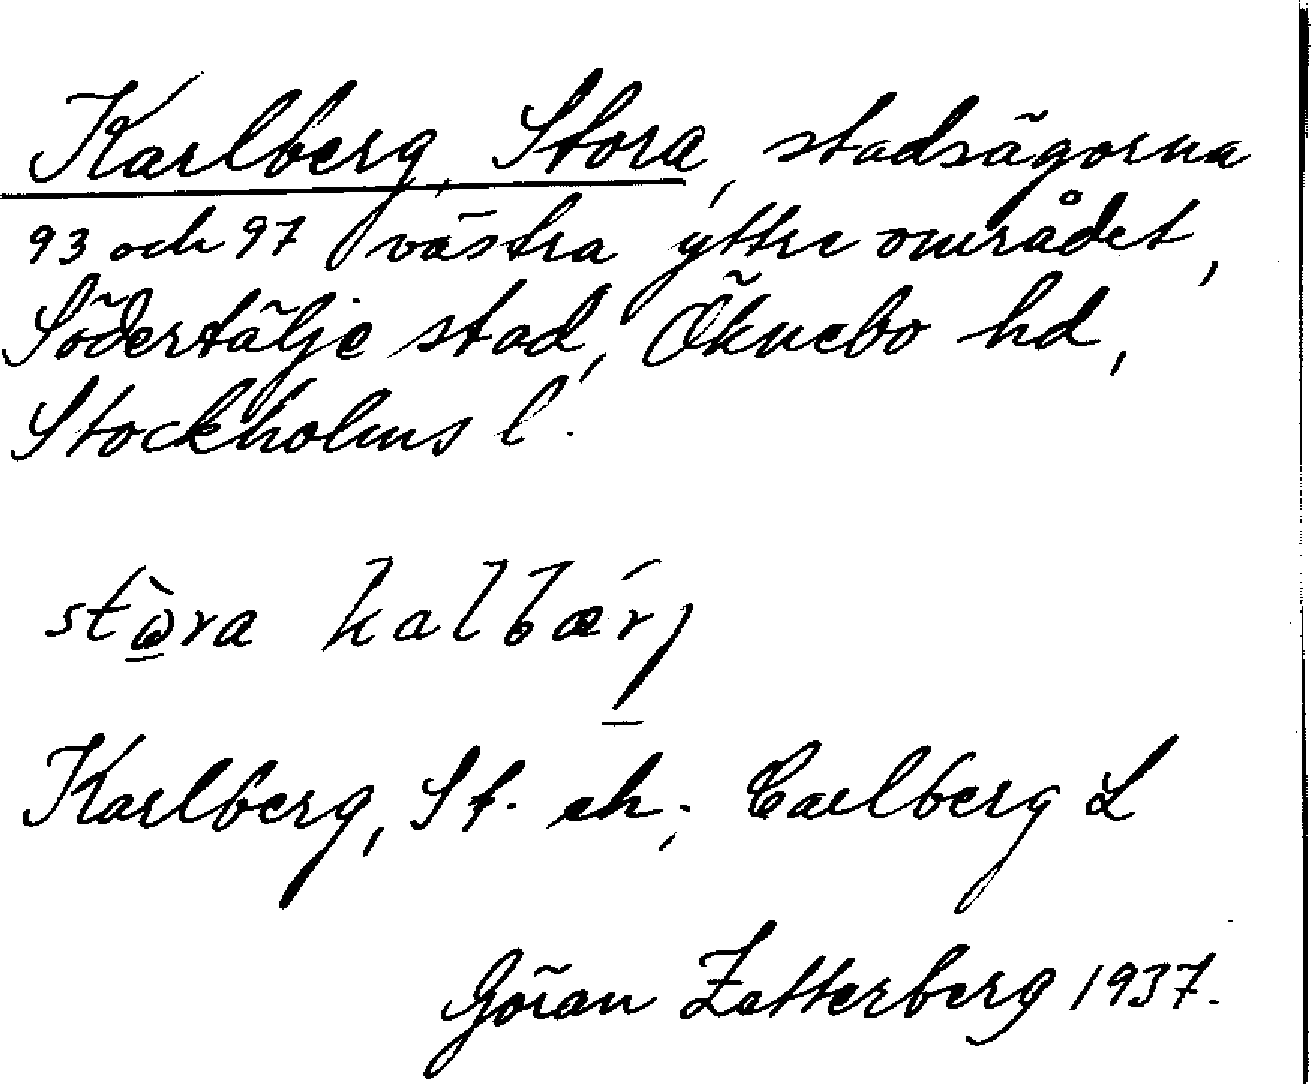 Karlberg, Stora, stadsägorna
93 och 97 västra yttre området,
Södertälje stad, Öknebo hd,
Stockholms l.
stòra kalbærj
Karlberg, St. ek.; Carlberg L
Göran Zetterberg 1937.